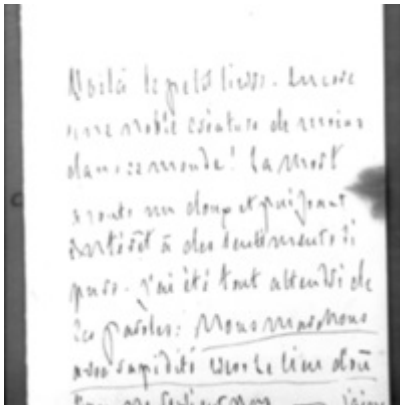 Voilà le petit livre. Encore
une noble créature de moins
dans ce monde! La mort
ajoute un doux et puissant
intérêt à des sentiments si
purs. j'ai été tout attendri de
ces paroles: Nous marchons
avec rapidité vers le lieu d'où